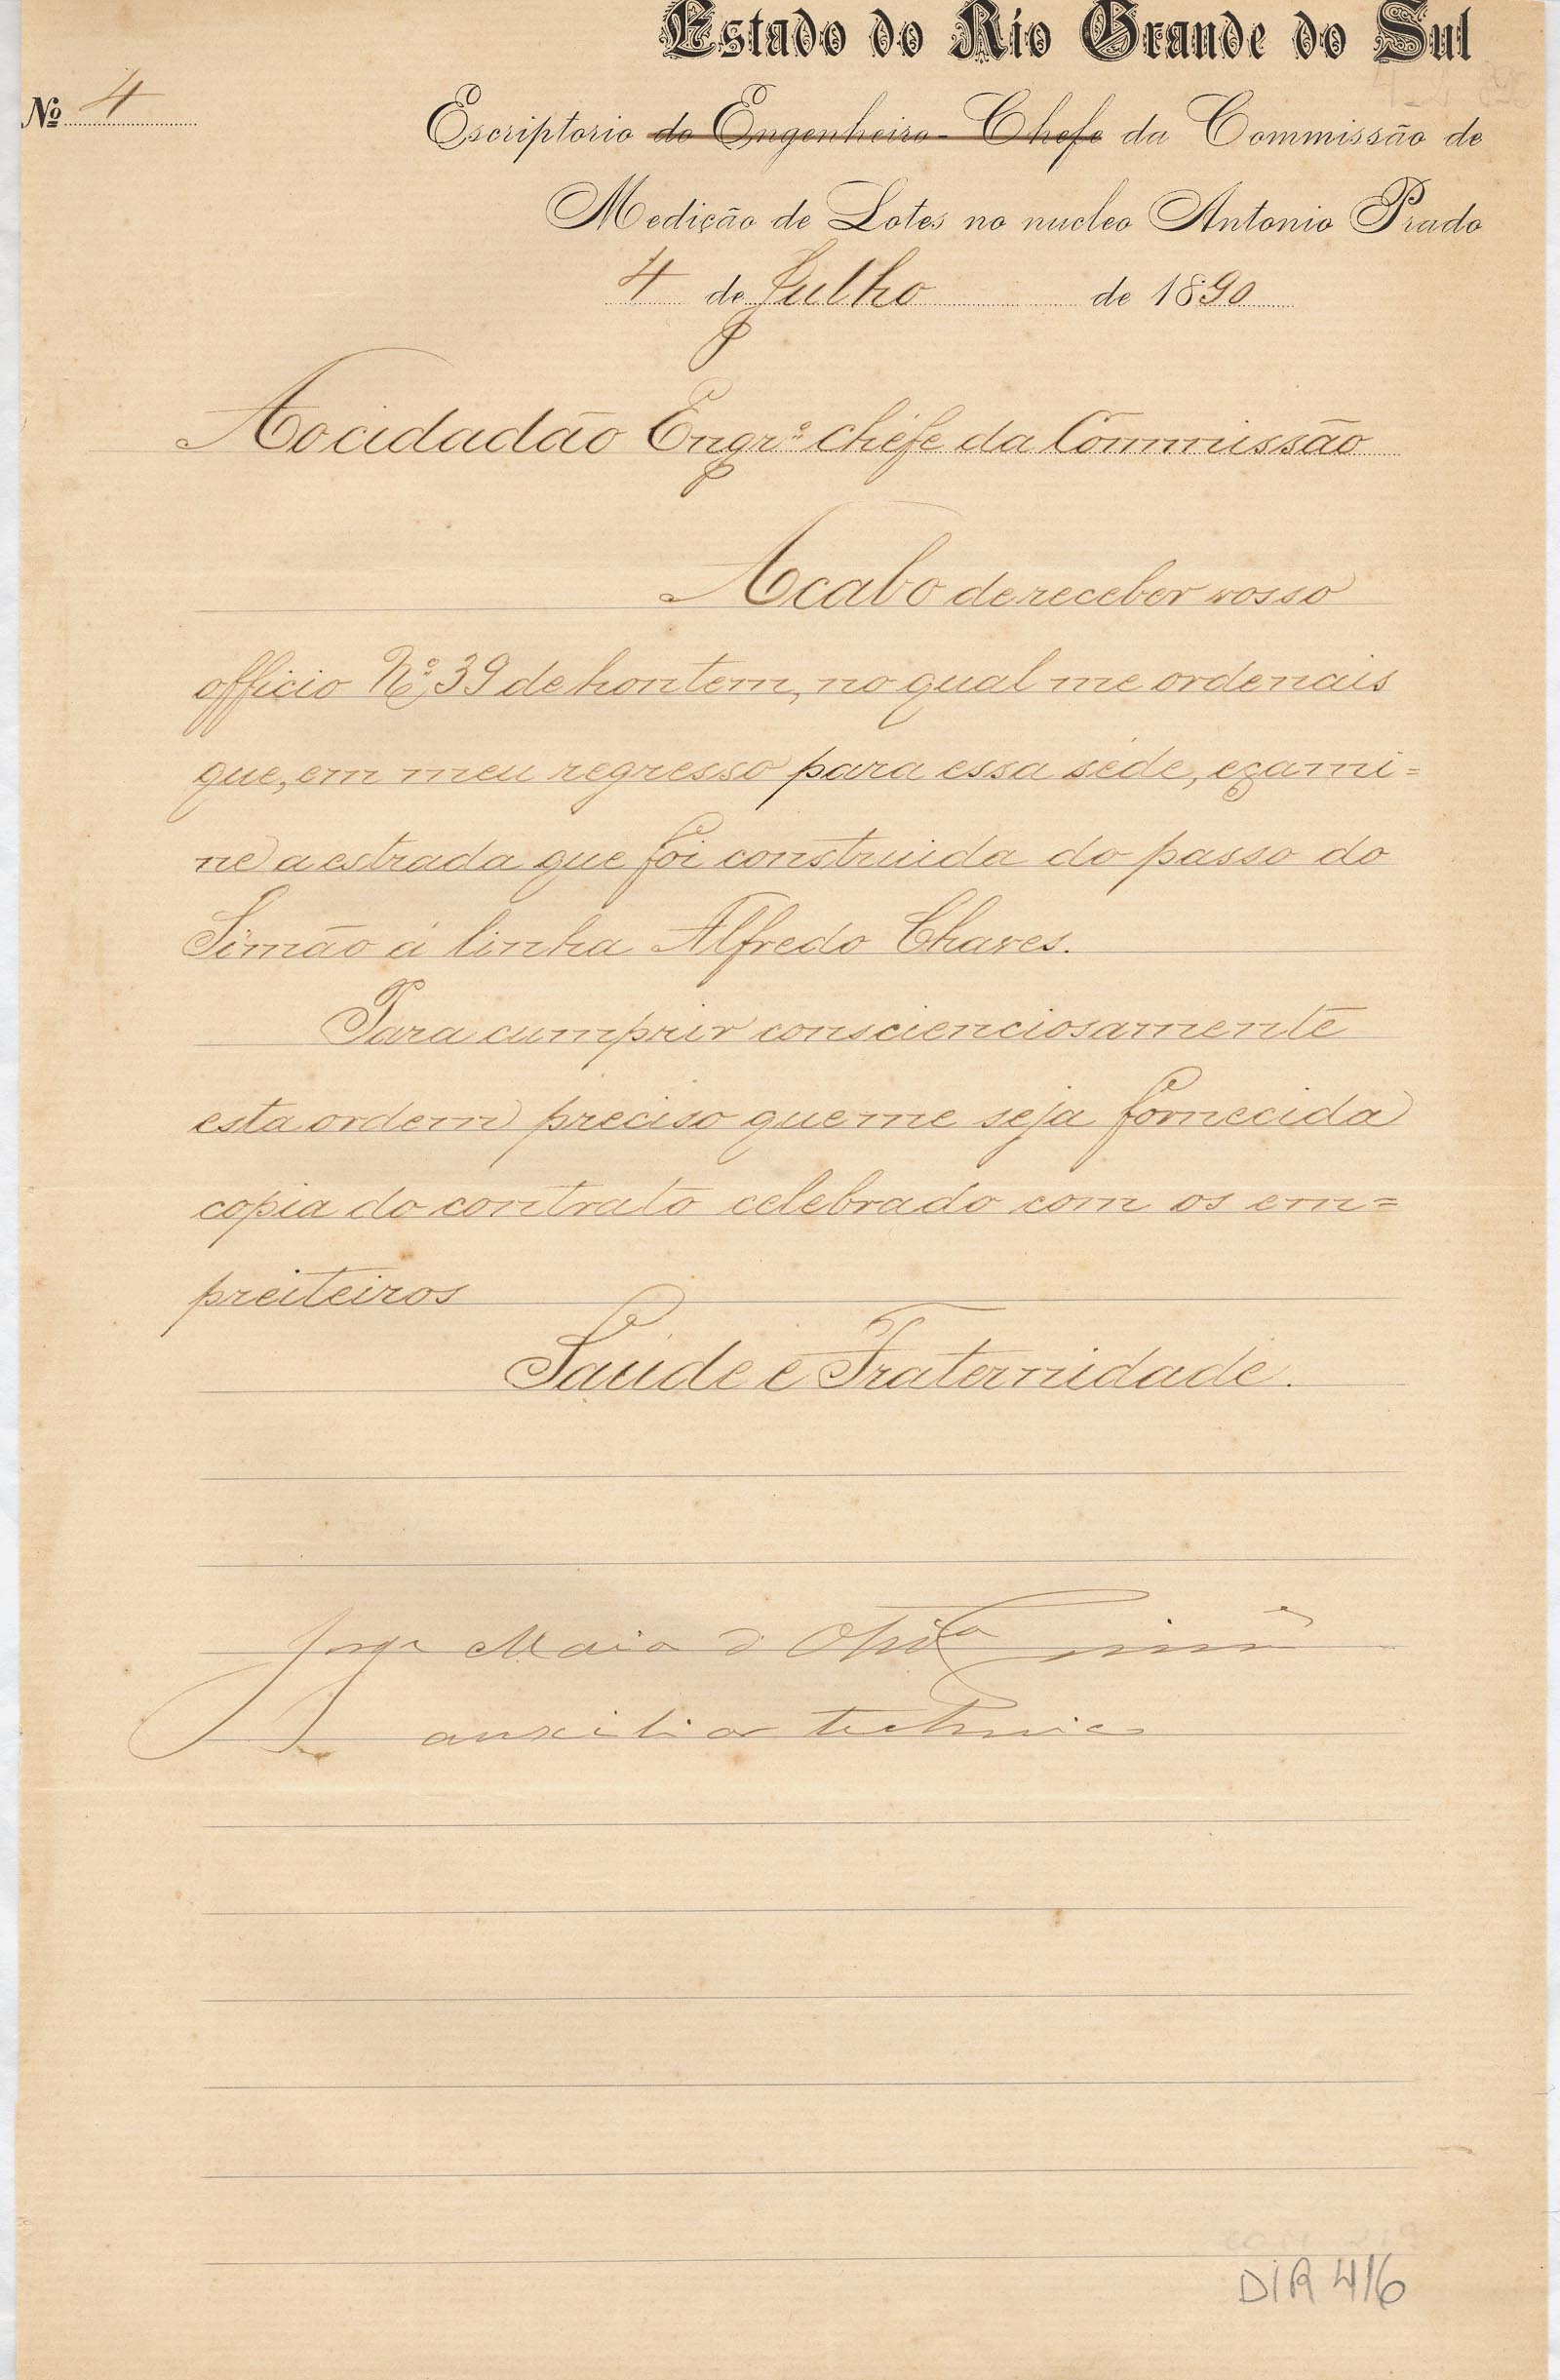 Estado do Rio Grande do Sul
Nº 4
Escriptorio do Engenheiro-Chefe da Commissão de
Medição de Lotes no nucleo Antonio Prado
4 de Julho de 1890
Ao cidadão Engrº chefe da Commissão
Acabo de receber vosso
officio Nº 39 de hontem, no qual me ordenais
que, em meu regresso para essa séde, ezami=
ne a estrada que foi construida do passo do
Simão á linha Alfredo Chaves.
Para cumprir conscienciosamente
esta ordem preciso que me seja fornecida
copia do contrato celebrado com os em=
preiteiros
Saúde e Fraternidade.
Jorge Maia
auxiliar technico
DIR 416